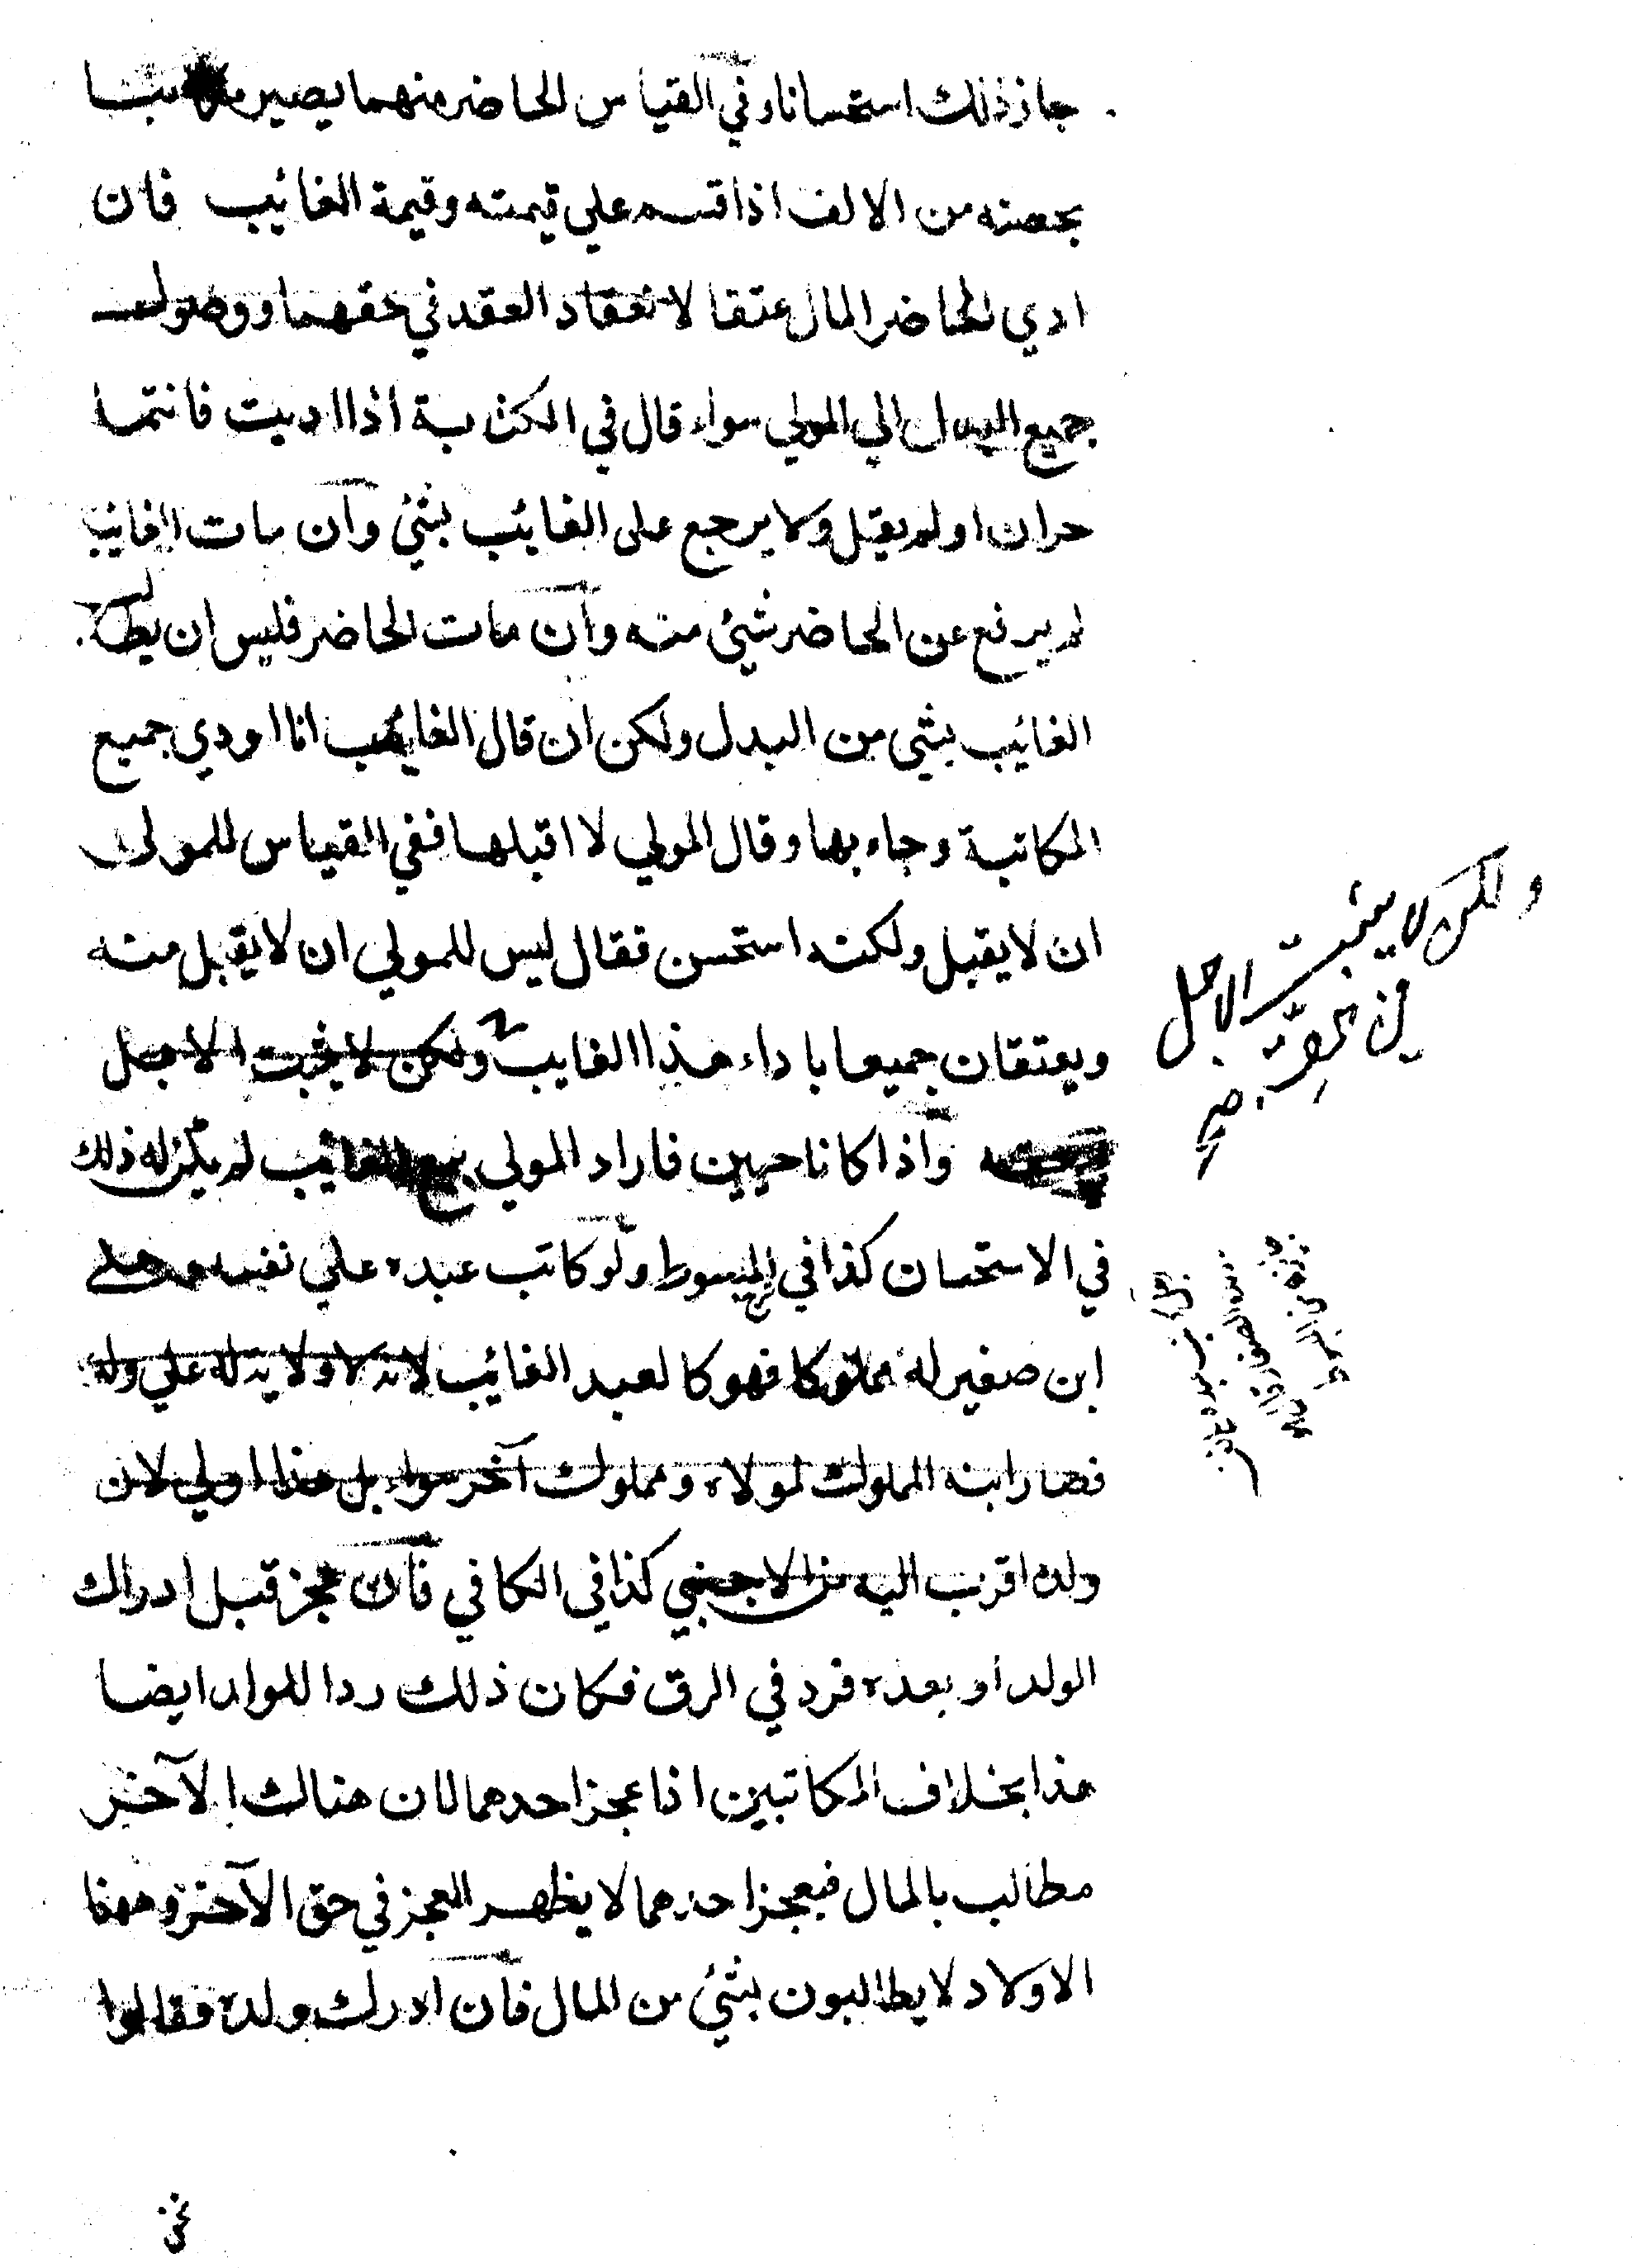 جاز ذلك استحسانا وفي القياس الحاضر منهما يصير مكاتبا
بحصته من الالف اذا قسم علي قيمته وقيمة الغائب فان
ادي الحاضر المال عتقا لانعقاد العقد في حقهما ووصول
جميع البدل الي المولي سواء قال في الكتابة اذا اديت فانتما
حران او لم يقل ولا يرجع على الغائب بشئ وان مات الغائب
لم يرفع عن الحاضر شيئ منه وان مات الحاضر فليس ان يطالب
الغائب بشي من البدل ولكن ان قال الغائب انا اودي جميع
المكاتبة وجاء بها وقال المولي لا اقبلها ففي القياس للمولى
ان لا يقبل ولكنه استحسن فقال ليس للمولي ان لا يقبل منه
ويعتقان جميعا باداء هذا الغايب ولكن لا يثبت الاجل
واذا كانا حيين فاراد المولي بيع الغائب لم يكن له ذلك
في الاستحسان كذا في المبسوط ولو كاتب عبده علي نفسه وعلى
ابن صغير له مملوكا فهو كالعبد الغائب لانه لا ولاية له علي ولده
فصار ابنه المملوك لمولاه ومملوك آخر سواء بل هذا اولي لان
ولده اقرب اليه من الاجنبي كذا في الكافي فان عجز قبل ادراك
الولد او بعده فرد في الرق فكان ذلك ردا للولد ايضا
هذا بخلاف المكاتبين اذا عجز احدهما لان هنالك الآخر
مطالب بالمال فبعجز احدهما لا يظهر العجز في حق الآخر وههنا
الاولاد لا يطالبون بشئ من المال فان ادرك ولده فقالوا
نحن
ولكن لا يثبت الاجل
في حقه صح